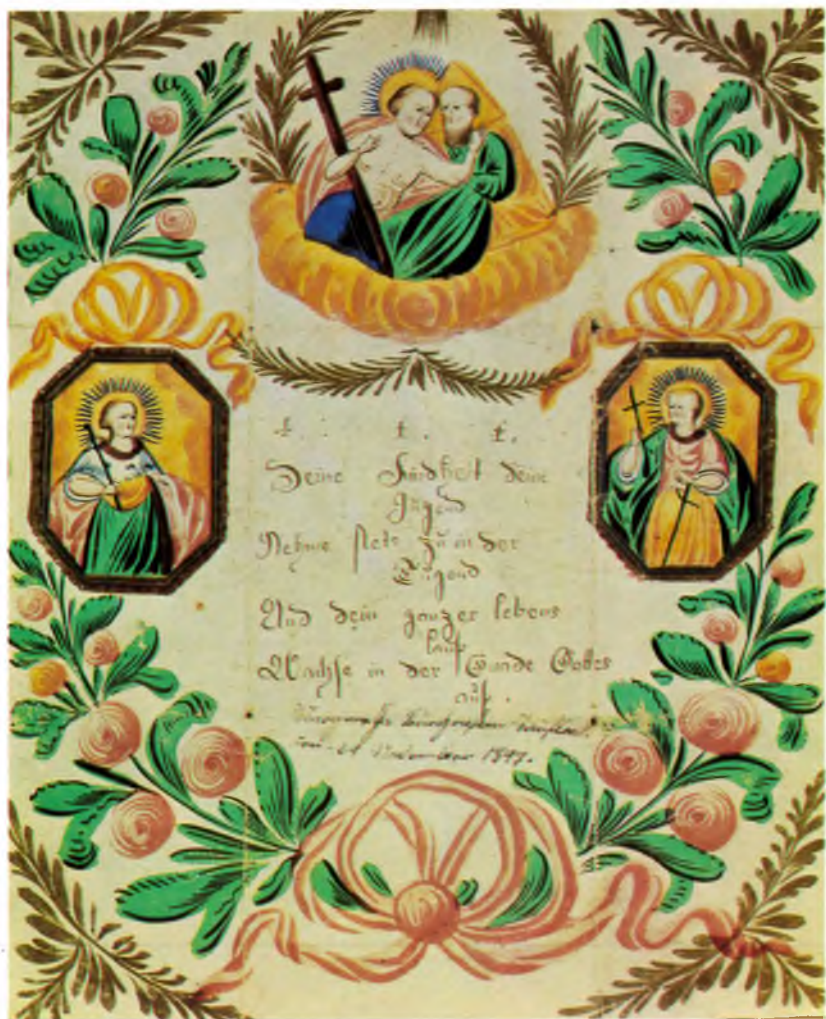 †. †. †.
Deine Kindheit deine
Jugend
Nehme stets zu in der
Tugend
Und dein ganzer lebens
lauf
Wachse in der Gnade Gottes
auf.
1847.